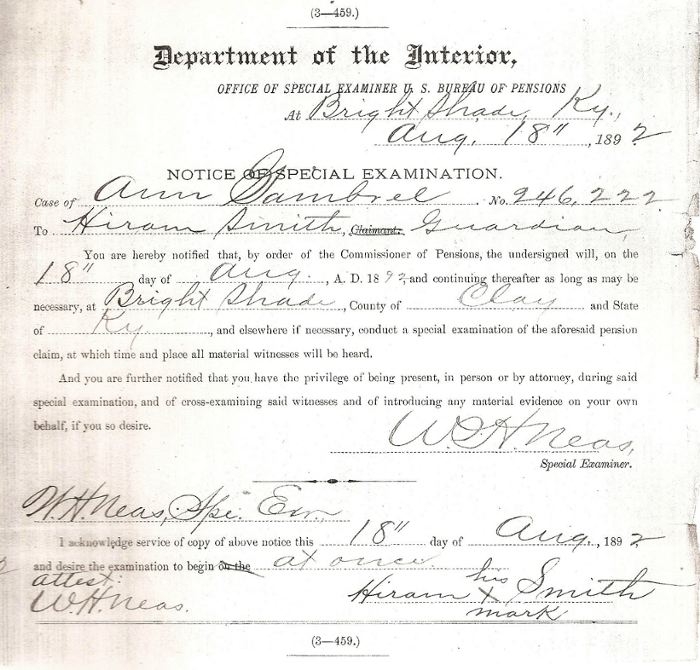 (3—459.)
Department of the Interior,
OFFICE OF SPECIAL EXAMINER U. S. BUREAU OF PENSIONS
At Bright Shade, Ky.,
Aug. 18", 1892
NOTICE OF SPECIAL EXAMINATION.
Case of Ann Gambrel, No. 246,222
To Hiram Smith, Claimant. Guardian,
You are hereby notified that, by order of the Commissioner of Pensions, the undersigned will, on the
18" day of Aug., A. D. 1892, and continuing thereafter as long as may be
necessary, at Bright Shade, County of Clay and State
of Ky, and elsewhere if necessary, conduct a special examination of the aforesaid pension
claim, at which time and place all material witnesses will be heard.
And you are further notified that you have the privilege of being present, in person or by attorney, during said
special examination, and of cross-examining said witnesses and of introducing any material evidence on your own
behalf, if you so desire.
W. H. Neas,
Special Examiner.
W. H. Neas, Spc. Exr.,
I acknowledge service of copy of above notice this 18" day of Aug., 1892
and desire the examination to begin on the at once
attest: Hiram his x mark Smith
W H Neas.
(3—459.)